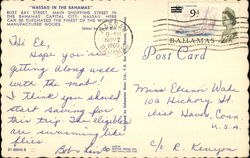 "NASSAU IN THE BAHAMAS"
BUSY BAY STREET, MAIN SHOPPING STREET IN
THE BAHAMAS' CAPITAL CITY, NASSAU. HERE
CAN BE PURCHASED THE FINEST OF THE WORLD'S
MANUFACTURED GOODS.
Hi El,
Hope you're
getting along well
with the mob!
I think you should
start saving for
this trip. The eligibles
are swimming like
flies.
Bob
Post Card
9d
BAHAMAS
1966
Miss Elinor Wade
102 Hickory St
Conn.
U.S.A.
c/o R. Kenyon